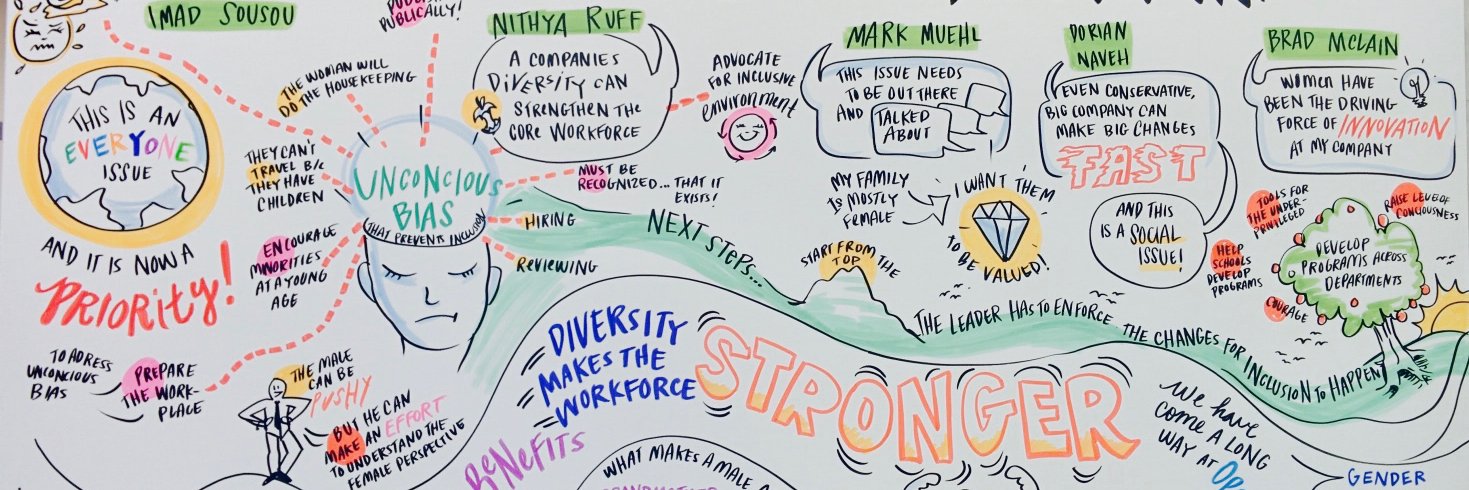 IMAD SOUSOU
PUBLICALLY!
NITHYA RUFF
MARK MUEHL
DORIAN
NAVEH
BRAD MCLAIN
THIS IS AN
EVERYONE
ISSUE
AND IT IS NOW A
PRIORITY!
THE WOMAN WILL
DO THE HOUSEKEEPING
THEY CAN'T
TRAVEL B/C
THEY HAVE
CHILDREN
ENCOURAGE
MINORITIES
AT A YOUNG
AGE
TO ADRESS
UNCONCIOUS
BIAS
PREPARE
THE WORK-
PLACE
UNCONCIOUS
BIAS
THAT PREVENTS INCLUSION
THE MALE
CAN BE
PUSHY
BUT HE CAN
MAKE AN EFFORT
TO UNDERSTAND THE
FEMALE PERSPECTIVE
A COMPANIES
DIVERSITY CAN
STRENGTHEN THE
CORE WORKFORCE
ADVOCATE
FOR INCLUSIVE
environment
MUST BE
RECOGNIZED... THAT IT
EXISTS!
HIRING
REVIEWING
NEXT STEPS...
START FROM THE
TOP
THE LEADER HAS TO ENFORCE THE CHANGES FOR INCLUSION TO HAPPEN
THIS ISSUE NEEDS
TO BE OUT THERE
AND TALKED
ABOUT
MY FAMILY
IS MOSTLY
FEMALE
I WANT THEM
TO BE VALUED!
EVEN CONSERVATIVE,
BIG COMPANY CAN
MAKE BIG CHANGES
FAST
AND THIS
IS A SOCIAL
ISSUE!
WOMEN HAVE
BEEN THE DRIVING
FORCE OF INNOVATION
AT MY COMPANY
TOOLS FOR
THE UNDER-
PRIVILEGED
RAISE LEVEL OF
CONCIOUSNESS
HELP
SCHOOLS
DEVELOP
PROGRAMS
COURAGE
DEVELOP
PROGRAMS ACROSS
DEPARTMENTS
DIVERSITY
MAKES THE
WORKFORCE
STRONGER
BENEFITS
WHAT MAKES A MALE A
We have
COME A LONG
WAY AT
GENDER